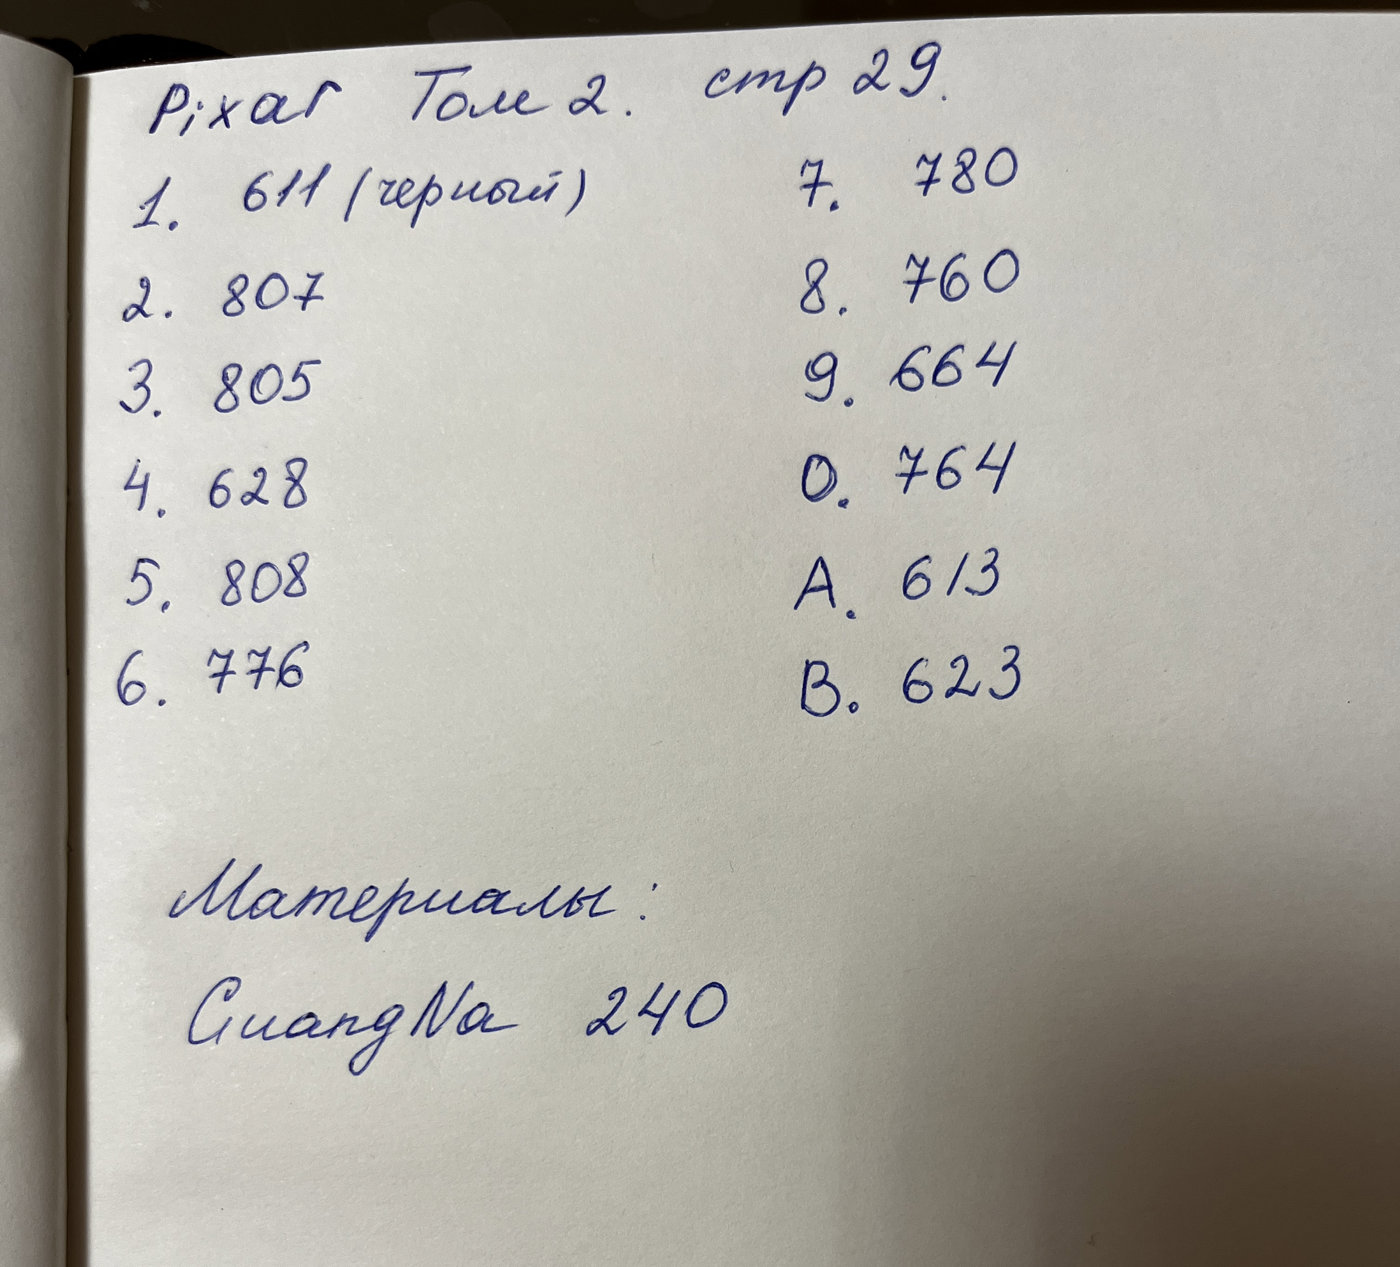 Pixar Том 2. стр 29.
1. 611 (черный)
2. 807
3. 805
4. 628
5. 808
6. 776
7. 780
8. 760
9. 664
0. 764
A. 613
B. 623
Материалы:
GuangNa 240